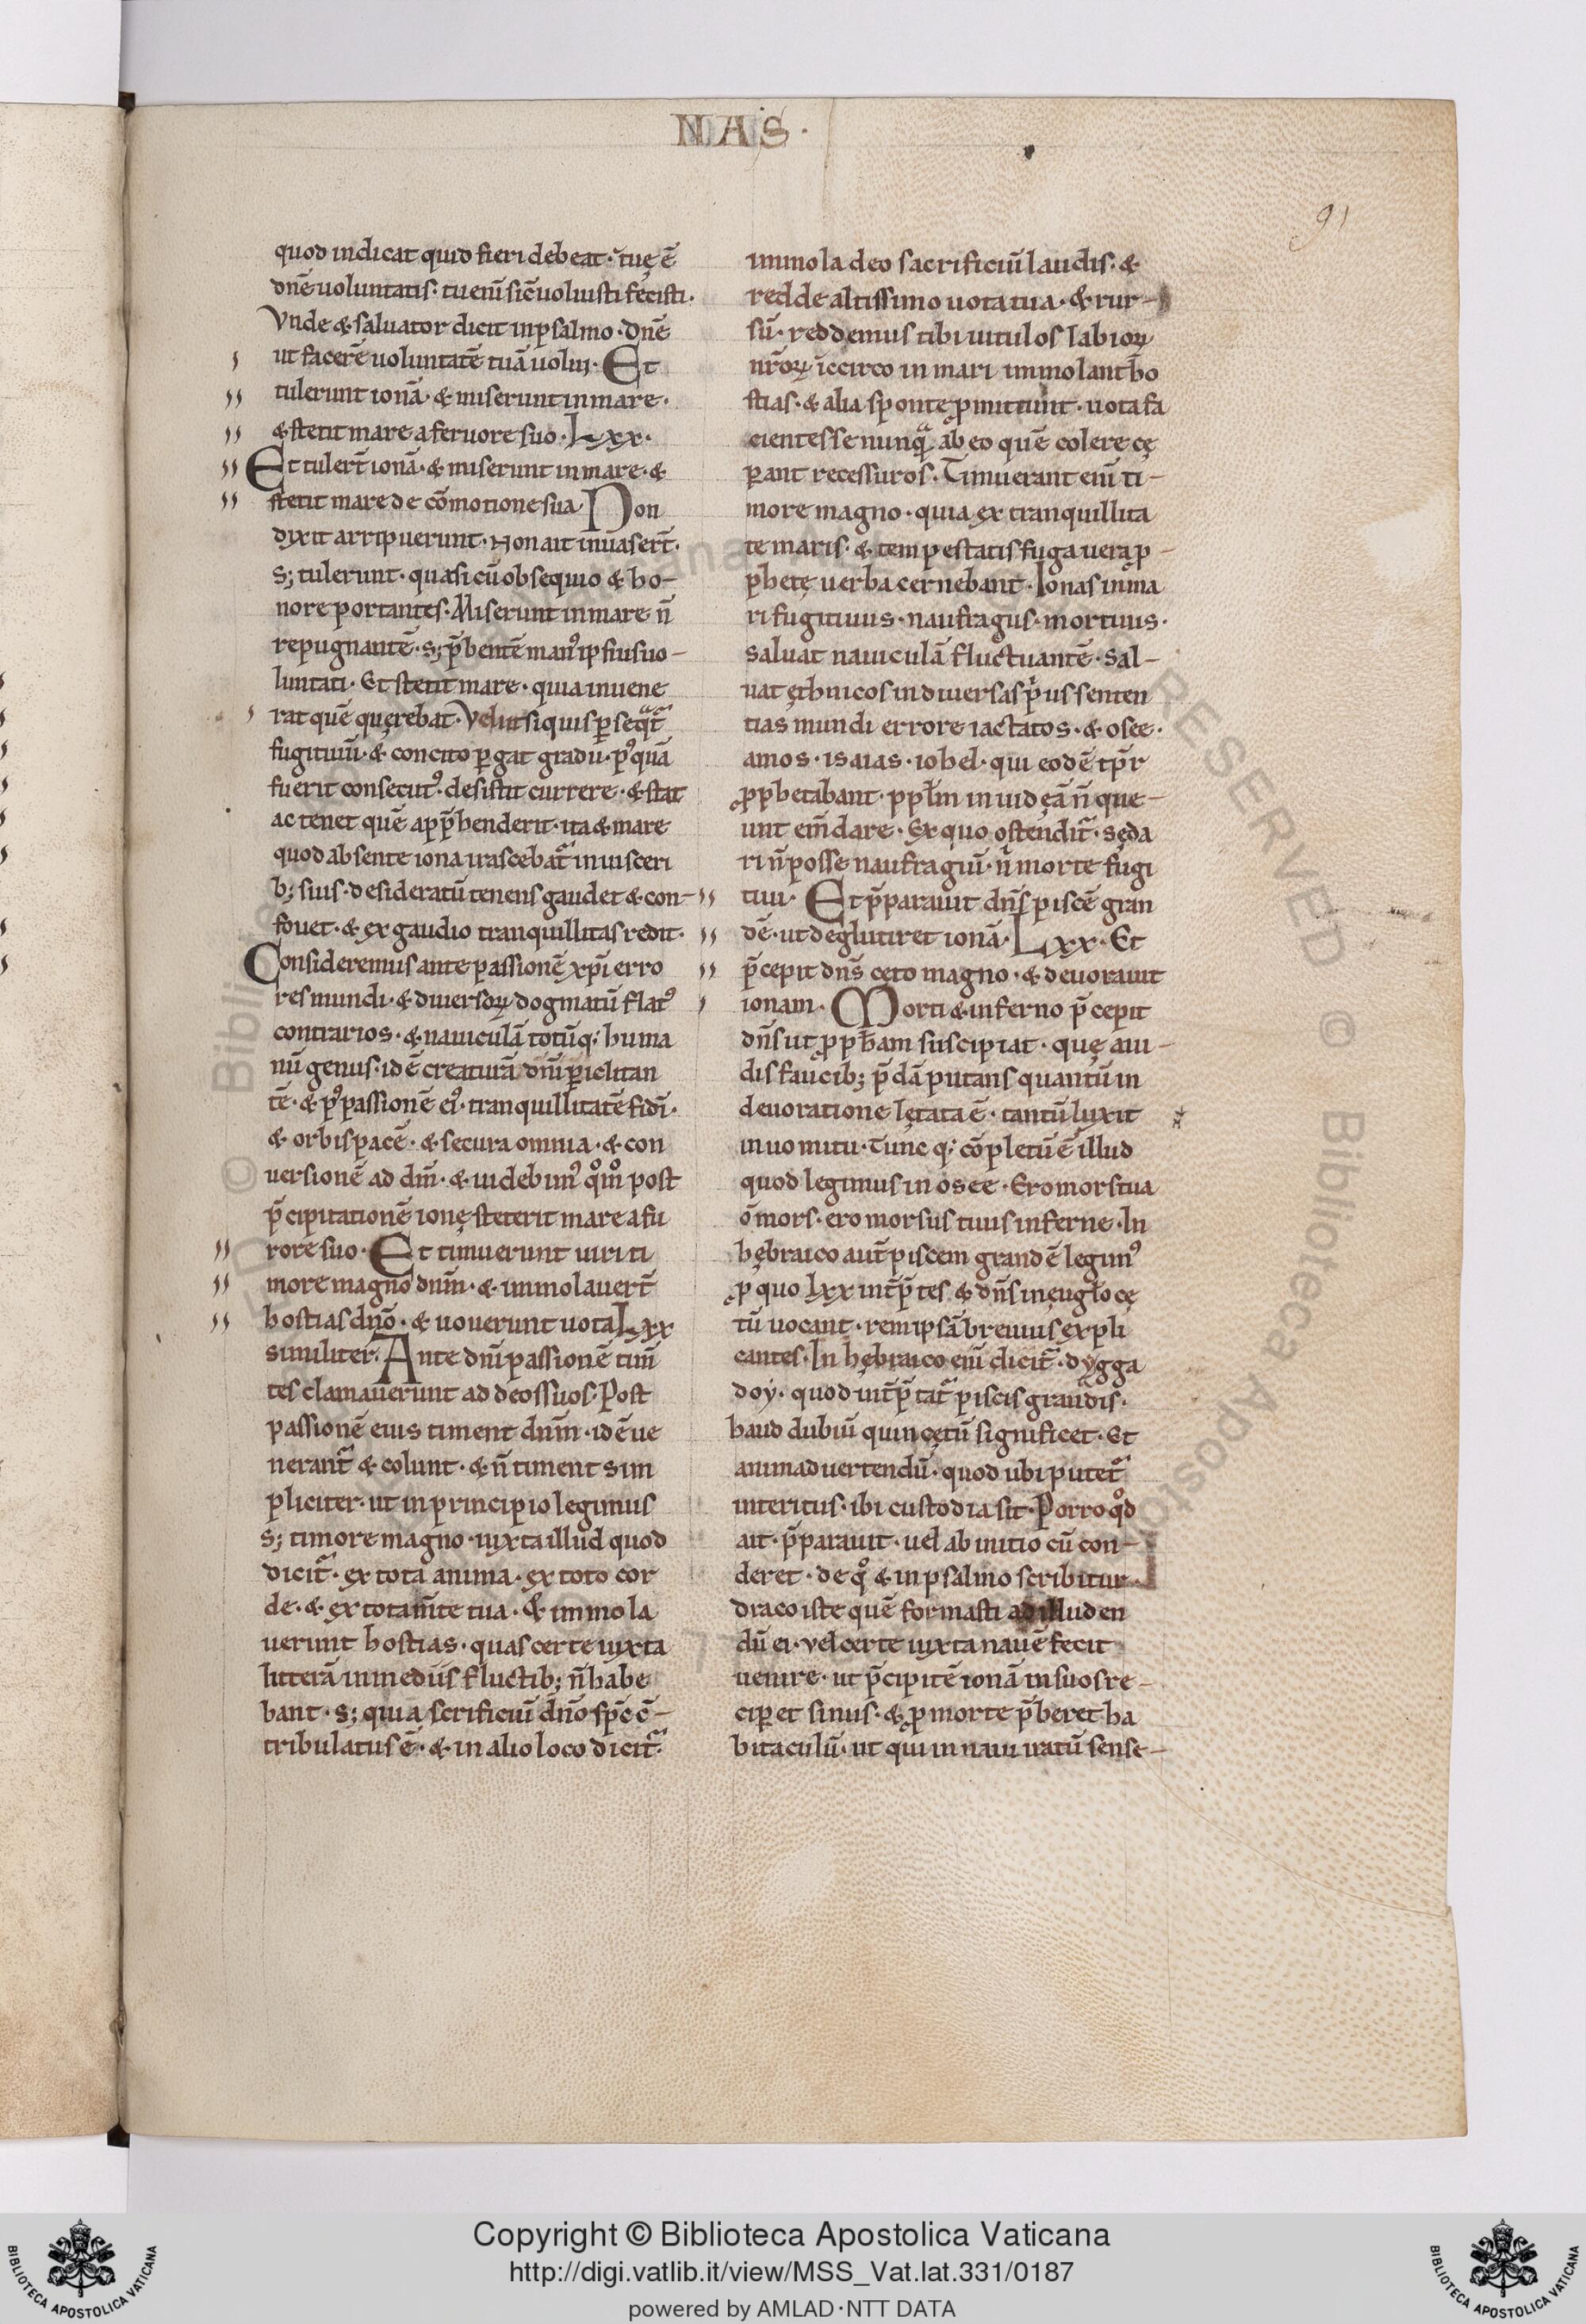 NAS·
91
quod indicat quid fieri debeat· tuę ē
dñe uoluntatis· tu eni̅ sic̅ uoluisti fecisti·
Vnde & saluator dicit in psalmo· Dñe
ut facere̅ uoluntate̅ tua̅ uolui· Et
tulerunt iona̅· & miserunt in mare·
& stetit mare a feruore suo· Lxx·
Et tulert̅ iona̅· & miserunt in mare· &
stetit mare de co̅motione sua Non
dixit arripuerunt· Non ait inuasert̅·
s; tulerunt· quasi cu̅ obsequio & ho-
nore portantes· Miserunt in mare n̅
repugnante̅· s; p̅bente̅ man᾿ ipsius uo-
luntati· Et stetit mare· quia inuene
rat que̅ quęrebat· Velut si quis ꝑseqᵃt᷑
fugitiuu̅· & concito ꝑgat gradu· p᾿quā
fuerit consecut᾿· desistit currere· & stat
ac tenet que̅ app̅henderit· ita & mare
quod absente iona irascebat᷑ in uisceri
b; suis· desideratu̅ tenens gaudet & con-
fouet· & ex gaudio tranquillitas redit·
Consideremus ante passione̅ xp̅i erro
res mundi· & diuersoꝝ dogmatu̅ flat᾿
contrarios· & nauicula̅ totu̅q; huma
nu̅ genus· id ē creatura̅ dn̅i ꝑiclitan
te̅· & p᾿ passione̅ ei᾿· tranquillitate̅ fidi̅·
& orbis pace̅· & secura omnia· & con
uersione̅ ad dn̅m· & uidebim᾿ qᵒmᵒ post
p̅cipitatione̅ ionę steterit mare a fu
rore suo· Et timuerunt uiri ti
more magno dn̅m· & immolauert̅
hostias dn̅o· & uouerunt uota Lxx
similiter· Ante dn̅i passione̅ tim̅
tes clamauerunt ad deos suos· Post
passione̅ eius timent dn̅m· id ē ue
nerant᷑ & colunt· & n̅ timent sim
pliciter· ut in principio legimus
s; timore magno· iuxta illud quod
dicit᷑· ex tota anima· ex toto cor
de· & ex tota m̅te tua· & immola
uerunt hostias· quas certe iuxta
littera̅ in mediis fluctib; n̅ habe
bant· s; quia scrificiu̅ dn̅o sp̅c c̅-
tribulatus ē· & in alio loco dicit᷑·
immola deo sacrificiu̅ laudis· &
redde altissimo uota tua· & rur-
su̅· reddemus tibi uitulos labioꝝ
nr̅oꝝ iccirco in mari immolant ho
stias· & alia sponte ꝓmittunt· uota fa
cientes se nunqᵃ ab eo que̅ colere cę
ꝑant recessuros· Timuerant eni̅ ti-
more magno· quia ex tranquillita
te maris· & tempestatis fuga uera ꝓ-
phetę uerba cernebant· Ionas in ma
ri fugitiuus· naufragus· mortuus·
saluat nauicula̅ fluctuante̅· Sal-
uat ęthnicos in diuersas pⁱus senten
tias mundi errore iactatos· & osee·
amos· isaias· iohel· qui eode̅ tp̅r
ꝓphetabant· ppl̅m in iudęa̅ n̅ que-
unt em̅dare· Ex quo ostendit᷑· sęda
ri n̅ posse naufragiu̅· nⁱ morte fugi
tiui· Et p̅parauit dn̅s pisce̅ gran
de̅· ut deglutiret iona̅· Lxx· Et
p̅cepit dn̅s ceto magno· & deuorauit
ionam· Morti & inferno p̅cepit
dn̅s ut ꝓph̅am suscipiat· quę aui-
dis faucib; p̅da̅ putans quantu̅ in
deuoratione lętata ē· tantu̅ luxit
in uomitu· Tunc q; co̅pletu̅ ē illud
quod legimus in osee· Ero mors tua
o mors· ero morsus tuus inferne· In
hębraico aut̅ piscem grande̅ legim᾿
ꝓ quo lxx int̅p̅tes & dn̅s in ęuglo cę
tu̅ uocant· rem ipsa̅ breuius expli
cantes· In hębraico eni̅ dicit᷑· dygga
doy· quod int̅p̅tat᷑ piscis grandis·
haud dubiu̅ quin cętu̅ significet· Et
animaduertendu̅· quod ubi putet᷑
interitus· ibi custodia sit· Porro qᵒd
ait· p̅parauit· uel ab initio cu̅ con-
deret· de qᵒ & in psalmo scribitur
draco iste que̅ formasti ad illuden
du̅ ei· vel certe iuxta naue̅ fecit
uenire· ut p̅cipite̅ iona̅ in suos re-
ciꝑet sinus· & ꝓ morte p̅beret ha
bitaculu̅· ut qui in naui iratu̅ sense-
Copyright © Biblioteca Apostolica Vaticana
http://digi.vatlib.it/view/MSS_Vat.lat.331/0187
powered by AMLAD·NTT DATA
BIBLIOTECA APOSTOLICA VATICANA
BIBLIOTECA APOSTOLICA VATICANA